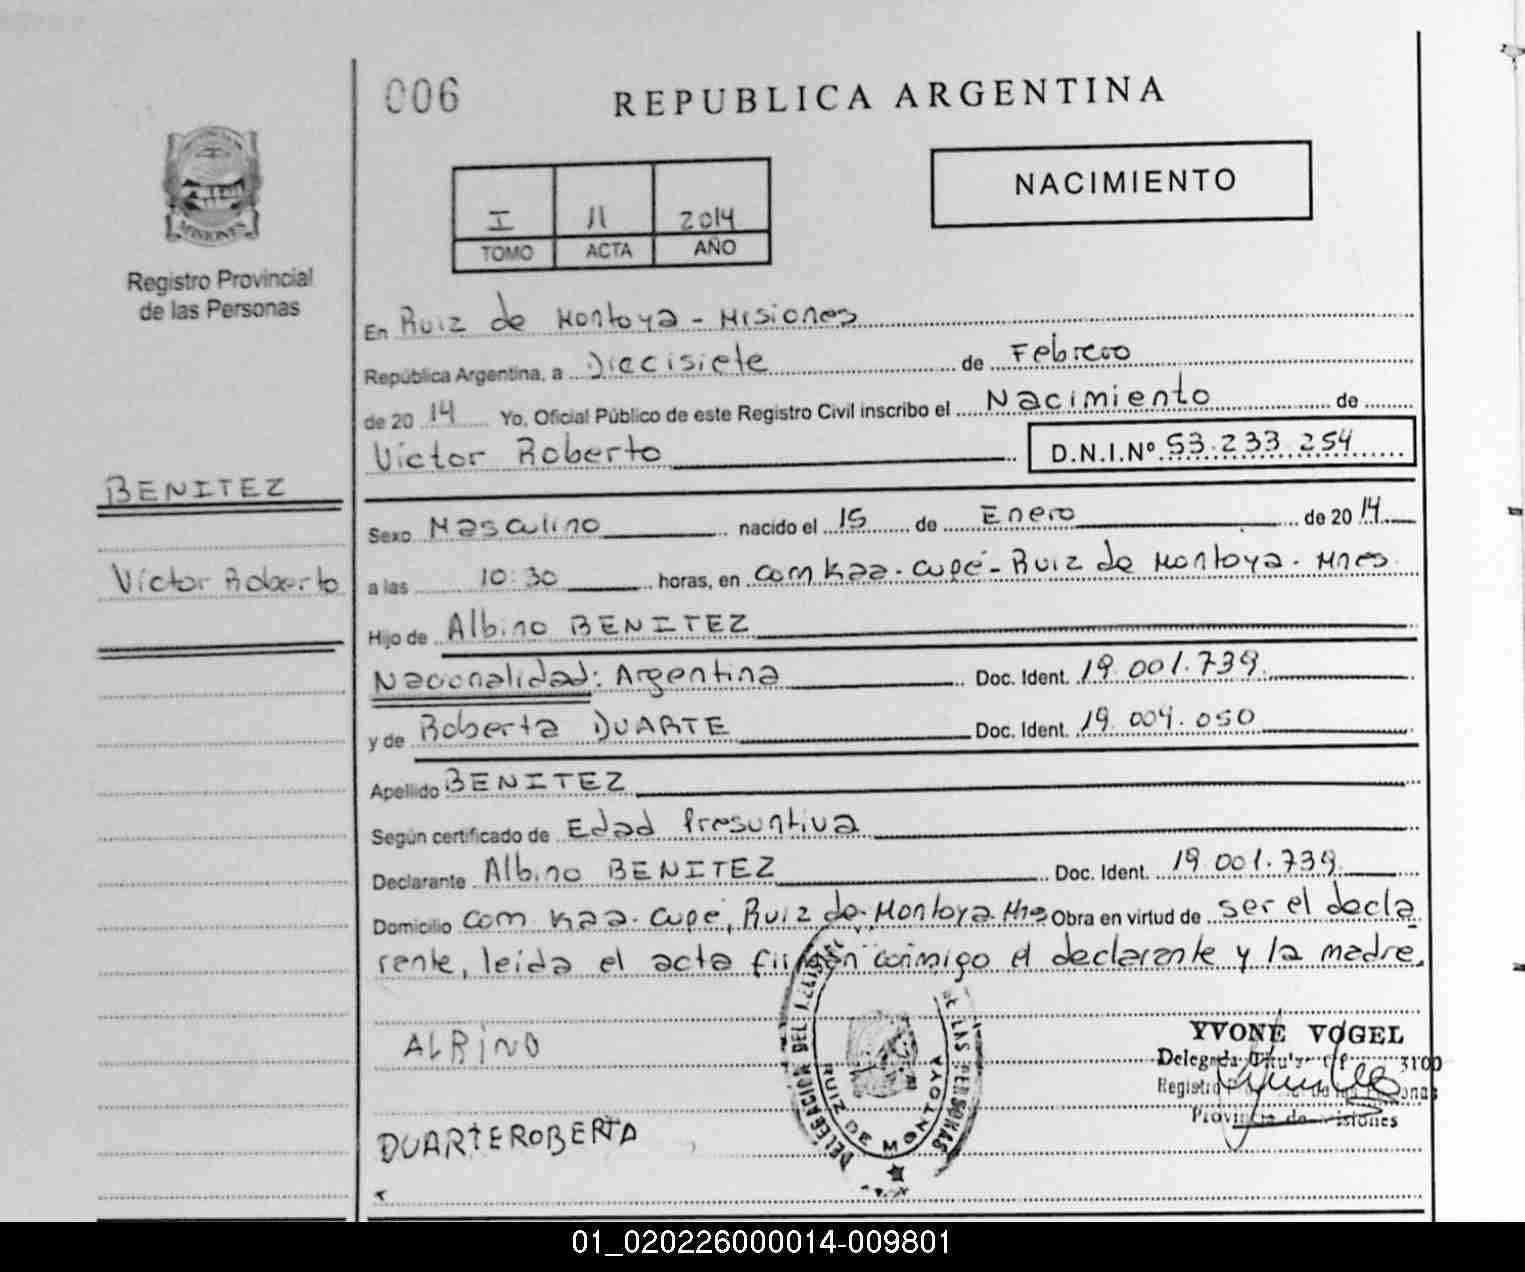 006
REPUBLICA ARGENTINA
NACIMIENTO
I 11 2014
TOMO ACTA AÑO
MISIONES
Registro Provincial
de las Personas
BENITEZ
Víctor Roberto
En Ruiz de Montoya - Misiones
República Argentina, a Diecisiete de Febrero
de 2014 Yo, Oficial Público de este Registro Civil inscribo el Nacimiento de
Víctor Roberto D.N.I.Nº 53.233.254
Sexo Masculino nacido el 15 de Enero de 2014
a las 10:30 horas, en Com Kaa-Cupé - Ruiz de Montoya - Mnes
Hijo de Albino BENITEZ
Nacionalidad: Argentina Doc. Ident. 19.001.739
y de Roberta DUARTE Doc. Ident. 19.004.050
Apellido BENITEZ
Según certificado de Edad Presuntiva
Declarante Albino BENITEZ Doc. Ident. 19.001.739
Domicilio Com Kaa-Cupé, Ruiz de Montoya Mnes Obra en virtud de ser el decla
rente, leída el acta firman conmigo el declarante y la madre.
ALBiNO
DUARTE ROBERTA
DELEGACION DEL REGISTRO DE LAS PERSONAS
RUIZ DE MONTOYA
YVONE VOGEL
Delegada Titular 3100
Registro de las Personas
Provincia de Misiones
01_020226000014-009801